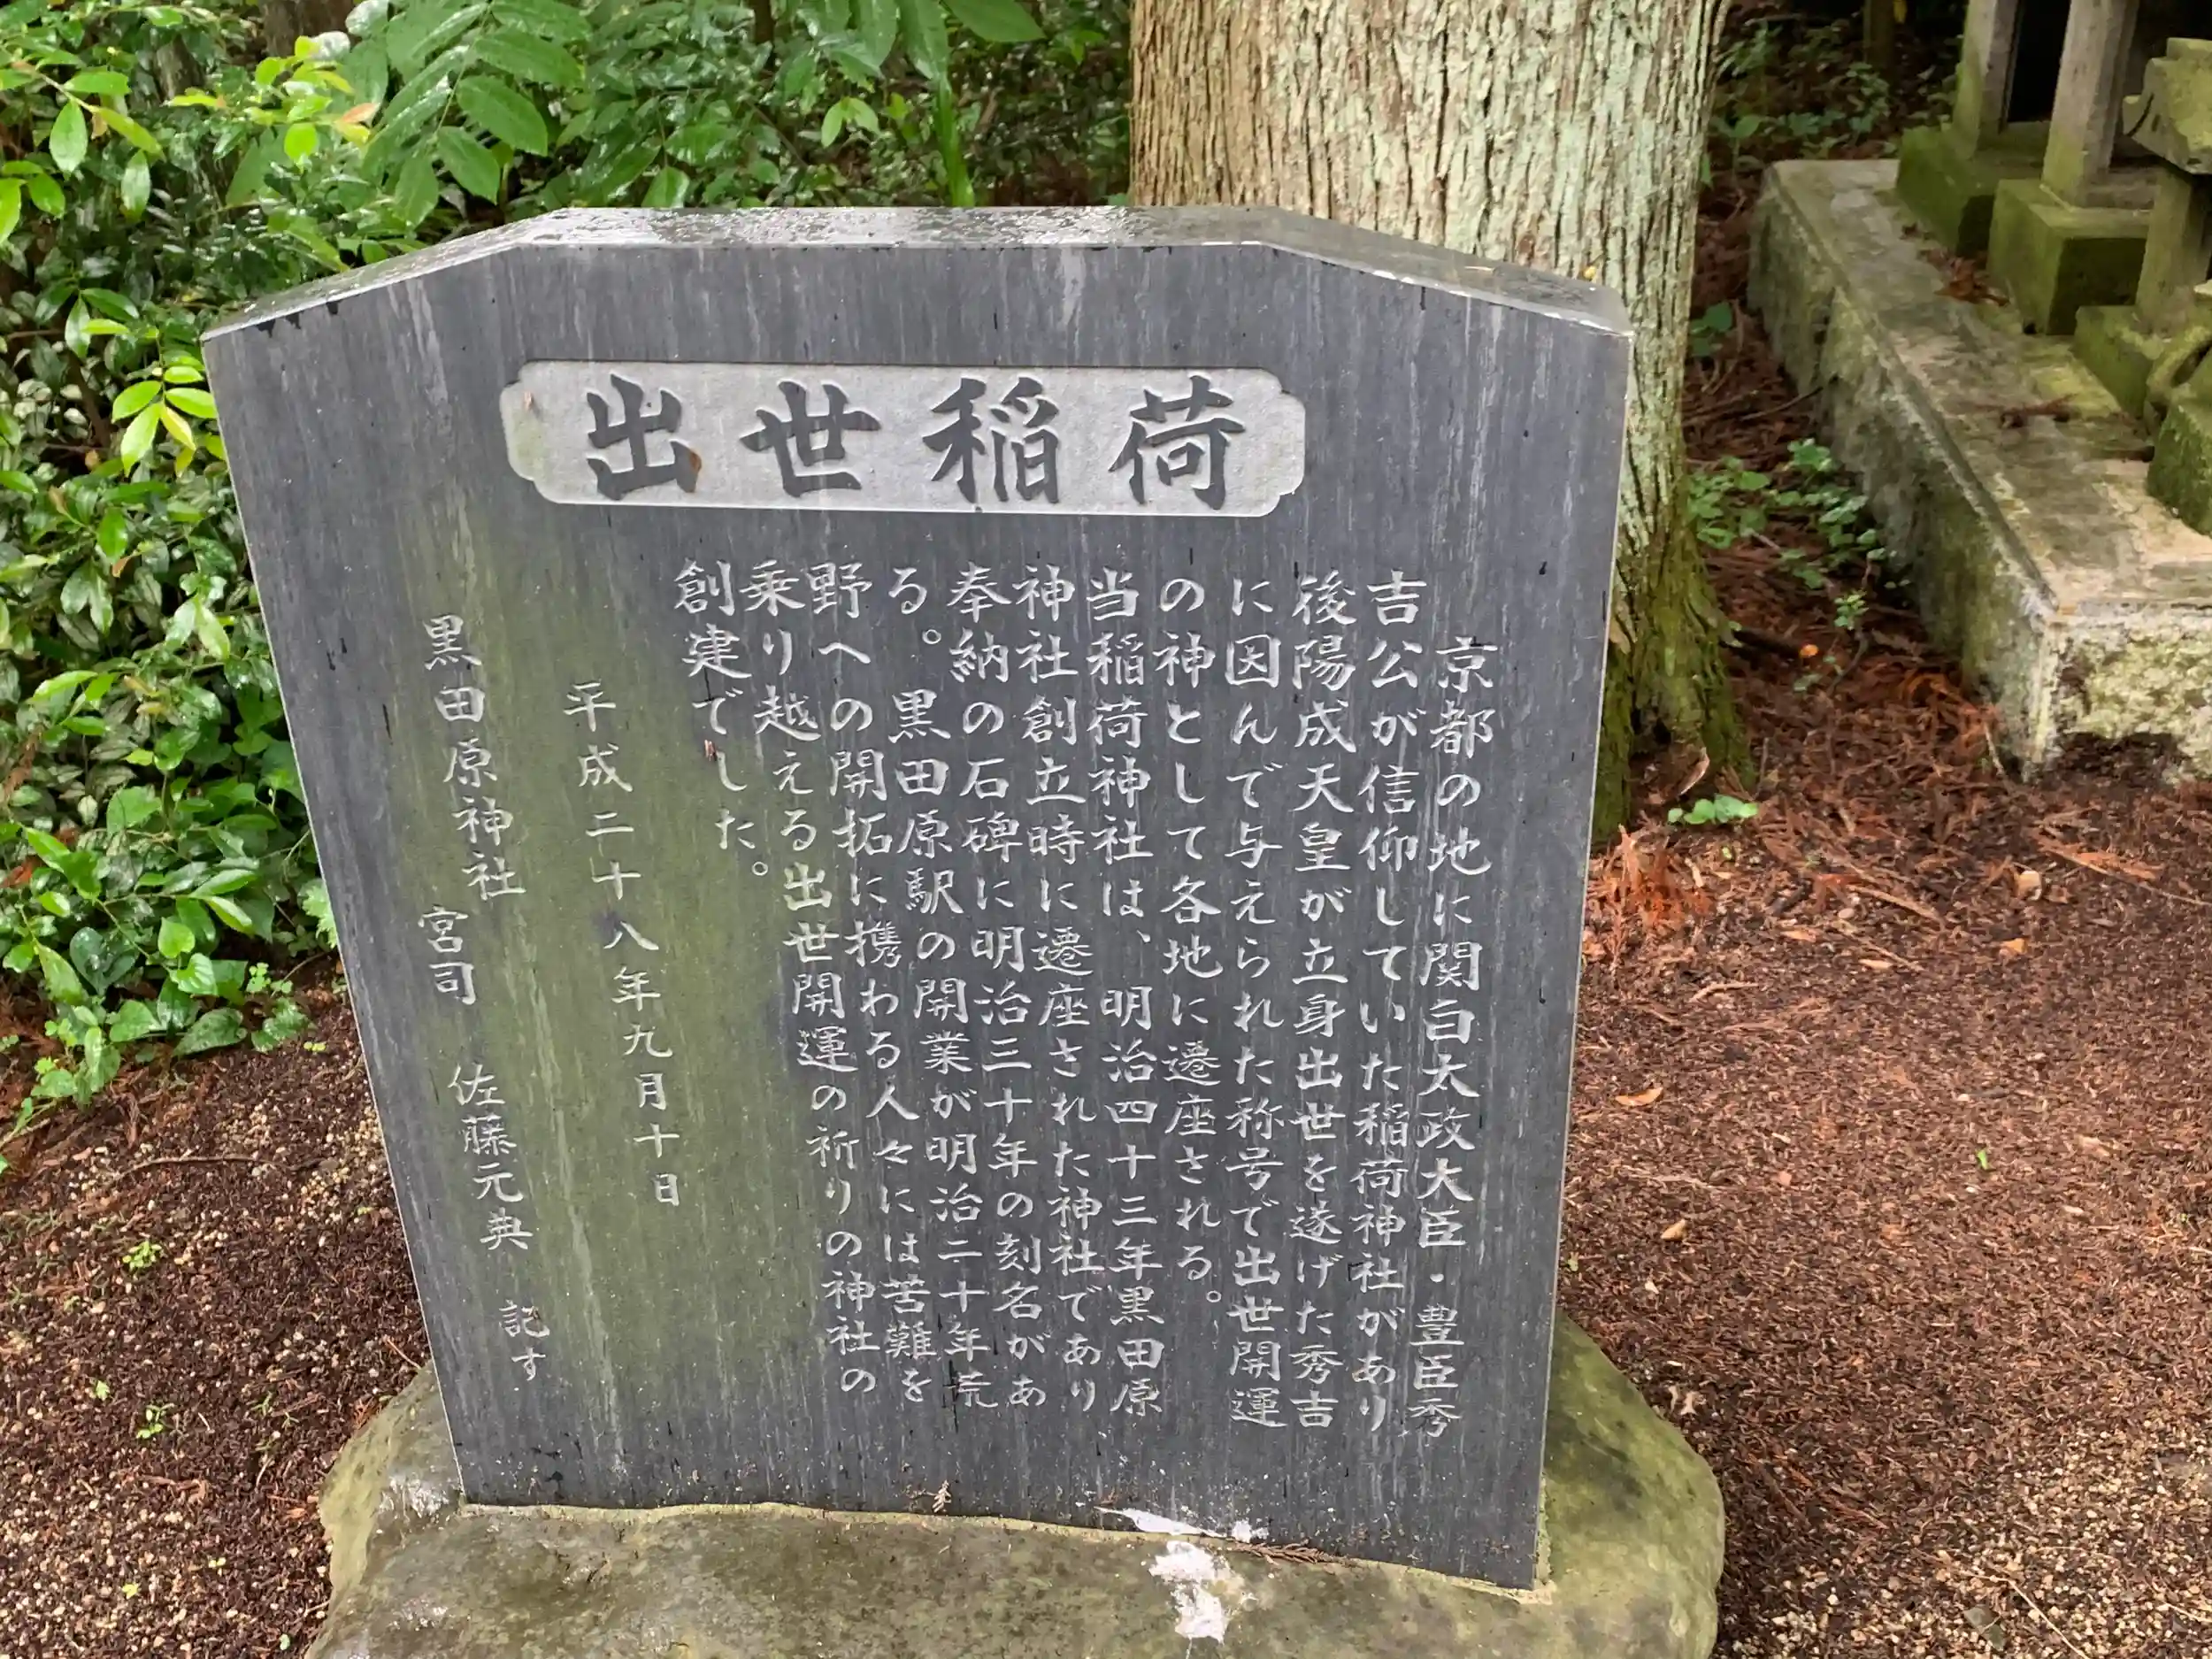 出世稲荷
京都の地に関白太政大臣・豊臣秀
吉公が信仰していた稲荷神社があり
後陽成天皇が立身出世を遂げた秀吉
に因んで与えられた称号で出世開運
の神として各地に遷座される。
当稲荷神社は、明治四十三年黒田原
神社創立時に遷座された神社であり
奉納の石碑に明治三十年の刻名があ
る。黒田原駅の開業が明治二十年荒
野への開拓に携わる人々には苦難を
乗り越える出世開運の祈りの神社の
創建でした。
平成二十八年九月十日
黒田原神社 宮司 佐藤元典 記す